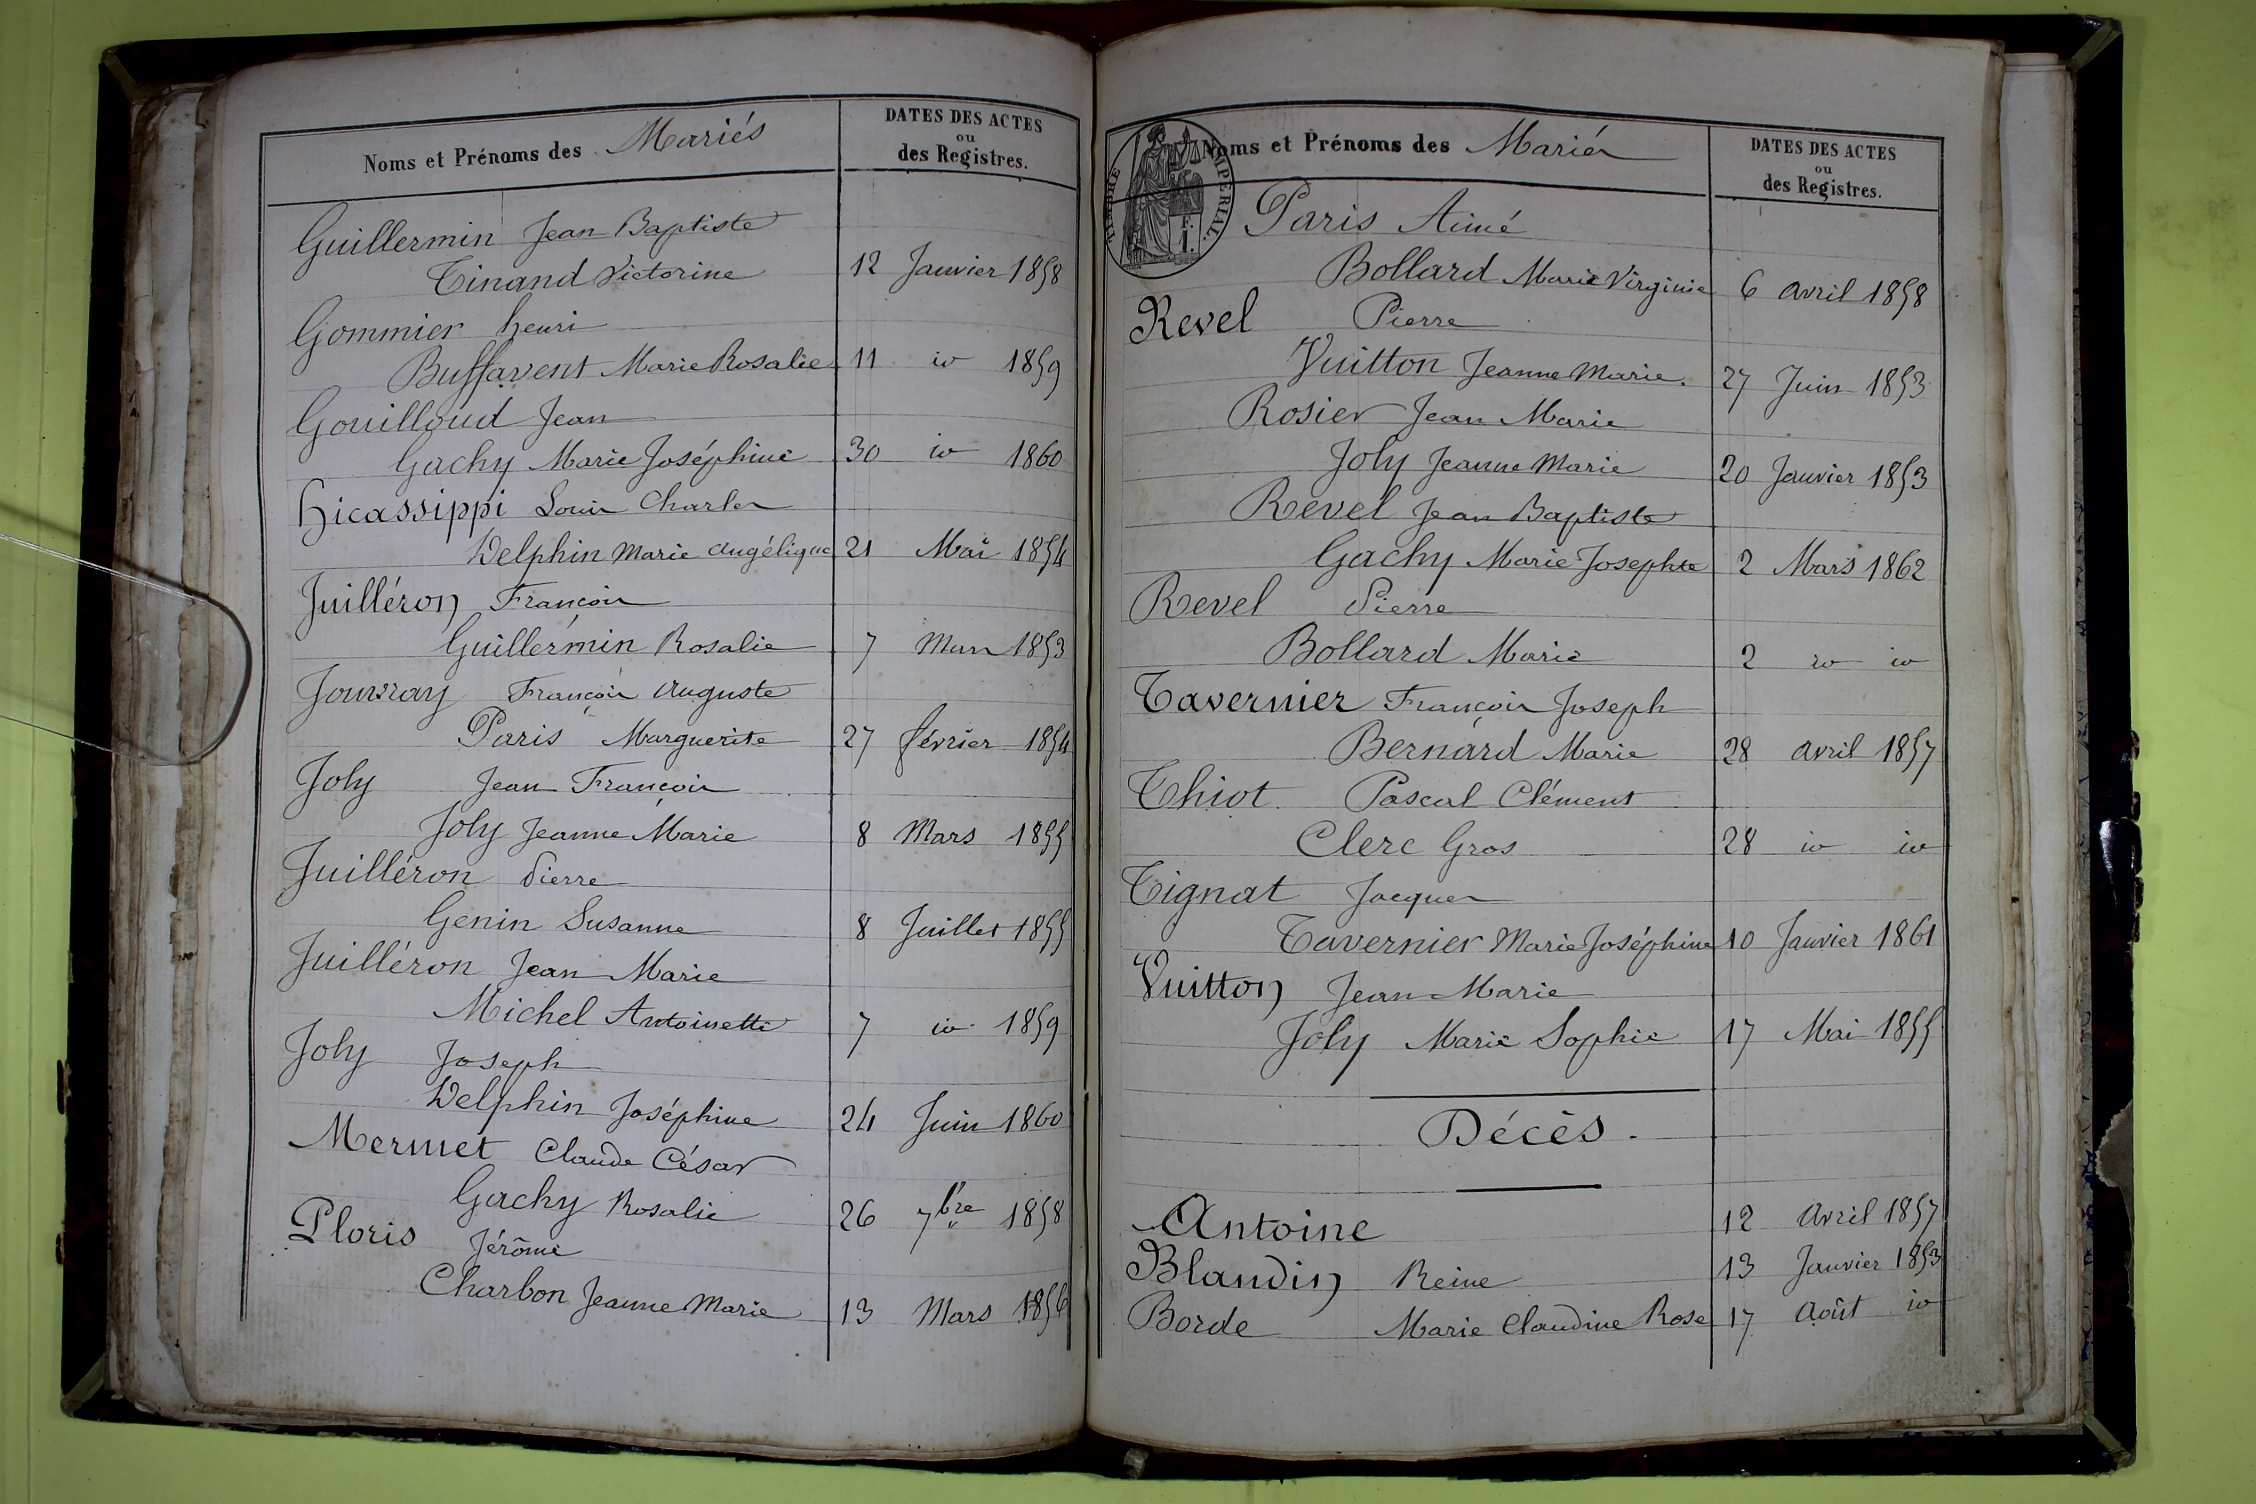 Noms et Prénoms des Mariés
DATES DES ACTES
ou
des Registres.
Guillermin Jean Baptiste
Tinand Victorine 12 Janvier 1858
Gommier henri
Buffavent Marie Rosalie 11 id 1859
Gouilloud Jean
Gachy Marie Joséphine 30 id 1860
hicassippi Louis Charles
Delphin Marie Angélique 21 Mai 1854
Juilléron François
Guillermin Rosalie 7 Mars 1853
François Auguste
Paris Marguerite 27 février 1854
Joly Jean François
Joly Jeanne Marie 8 Mars 1855
Juilléron Pierre
Genin Susanne 8 Juillet 1855
Juilléron Jean Marie
Michel Antoinette 7 id 1859
Joly Joseph
Delphin Joséphine 24 Juin 1860
Mermet Claude César
Gachy Rosalie 26 7bre 1858
Ploris Jérôme
Charbon Jeanne Marie 13 Mars 1856
TIMBRE IMPÉRIAL
1 F.
Noms et Prénoms des Mariés
DATES DES ACTES
ou
des Registres.
Paris Aimé
Bollard Marie Virginie 6 avril 1858
Revel Pierre
Vuitton Jeanne Marie. 27 Juin 1853
Rosier Jean Marie
Joly Jeanne Marie 20 Janvier 1853
Revel Jean Baptiste
Gachy Marie Josephte 2 Mars 1862
Revel Pierre
Bollard Marie 2 id id
Tavernier François Joseph
Bernard Marie 28 avril 1857
Thiot Pascal Clément
Clerc Gros 28 id id
Tignat Jacques
Tavernier Marie Joséphine 10 Janvier 1861
Vuitton Jean Marie
Joly Marie Sophie 17 Mai 1855
Décès.
Antoine 12 Avril 1857
Blandin Reine 13 Janvier 1853
Borde Marie Claudine Rose 17 Août id